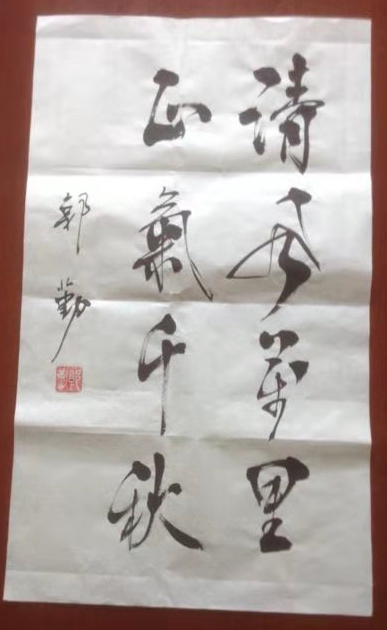 清萬里
正氣千秋
郭勤